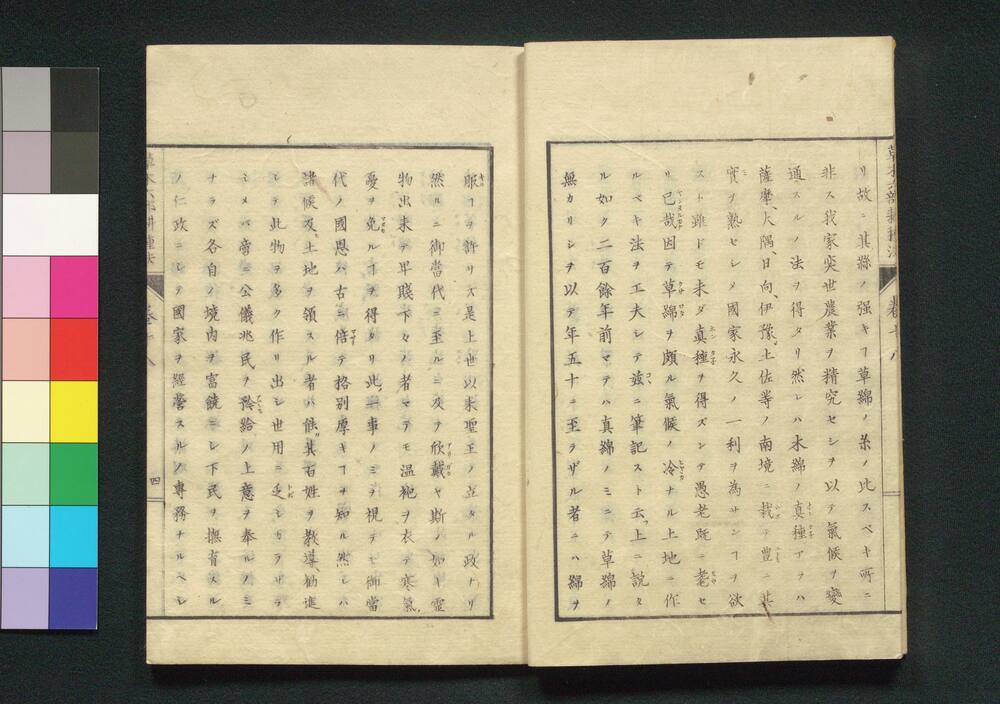 リ故ニ其絲ノ强キヿ草綿ノ糸ノ比スベキ所ニ
非ス我家奕世農業ヲ精究セシヲ以テ氣候ヲ變
通スルノ法ヲ得タリ然レハ木綿ノ真種アラハ
薩摩、大隅、日向、伊豫、土佐等ノ南境ニ栽テ豊ニ其
實ヲ熟セシメ國家永久ノ一利ヲ為サンヿヲ欲
スト雖ドモ未ダ真種ヲ得ズシテ愚老既ニ耄セ
リ已哉因テ草綿ヲ頗ル氣候ノ冷ナル上地ニ作
ルベキ法ヲ工夫シテ茲ニ筆記スト云、上ニ説タ
ル如ク二百餘年前マデハ真綿ノミニテ草綿ノ
無カリシヲ以テ年五十ニ至ラザル者ニハ綿ヲ
服ヿヲ許リス是上世以来聖王ノ立タル政ナリ
然ルニ御當代ニ至ルニ及テ欣戴ヤ斯ノ如キ霊
物出来テ卑賤下々ノ者マデモ温袍ヲ衣テ寒氣ノ
憂ヲ免ルヿヲ得タリ此一事ノミヲ視テモ御當
代ノ國恩ハ古ニ倍テ格別厚キヿヲ知ル然レハ
諸侯及ヒ土地ヲ領スル者ハ能其百姓ヲ教導、勧進
シテ此物ヲ多ク作リ出シ世用ニ乏シカラザラ
シメバ啻ニ公儀兆民ヲ矜給ノ上意ヲ奉ルノミ
ナラズ各自ノ境内ヲ富饒ニシ下民ヲ撫育スル
ノ仁政ニシテ國家ヲ經營スルノ專務ナルベシ
四